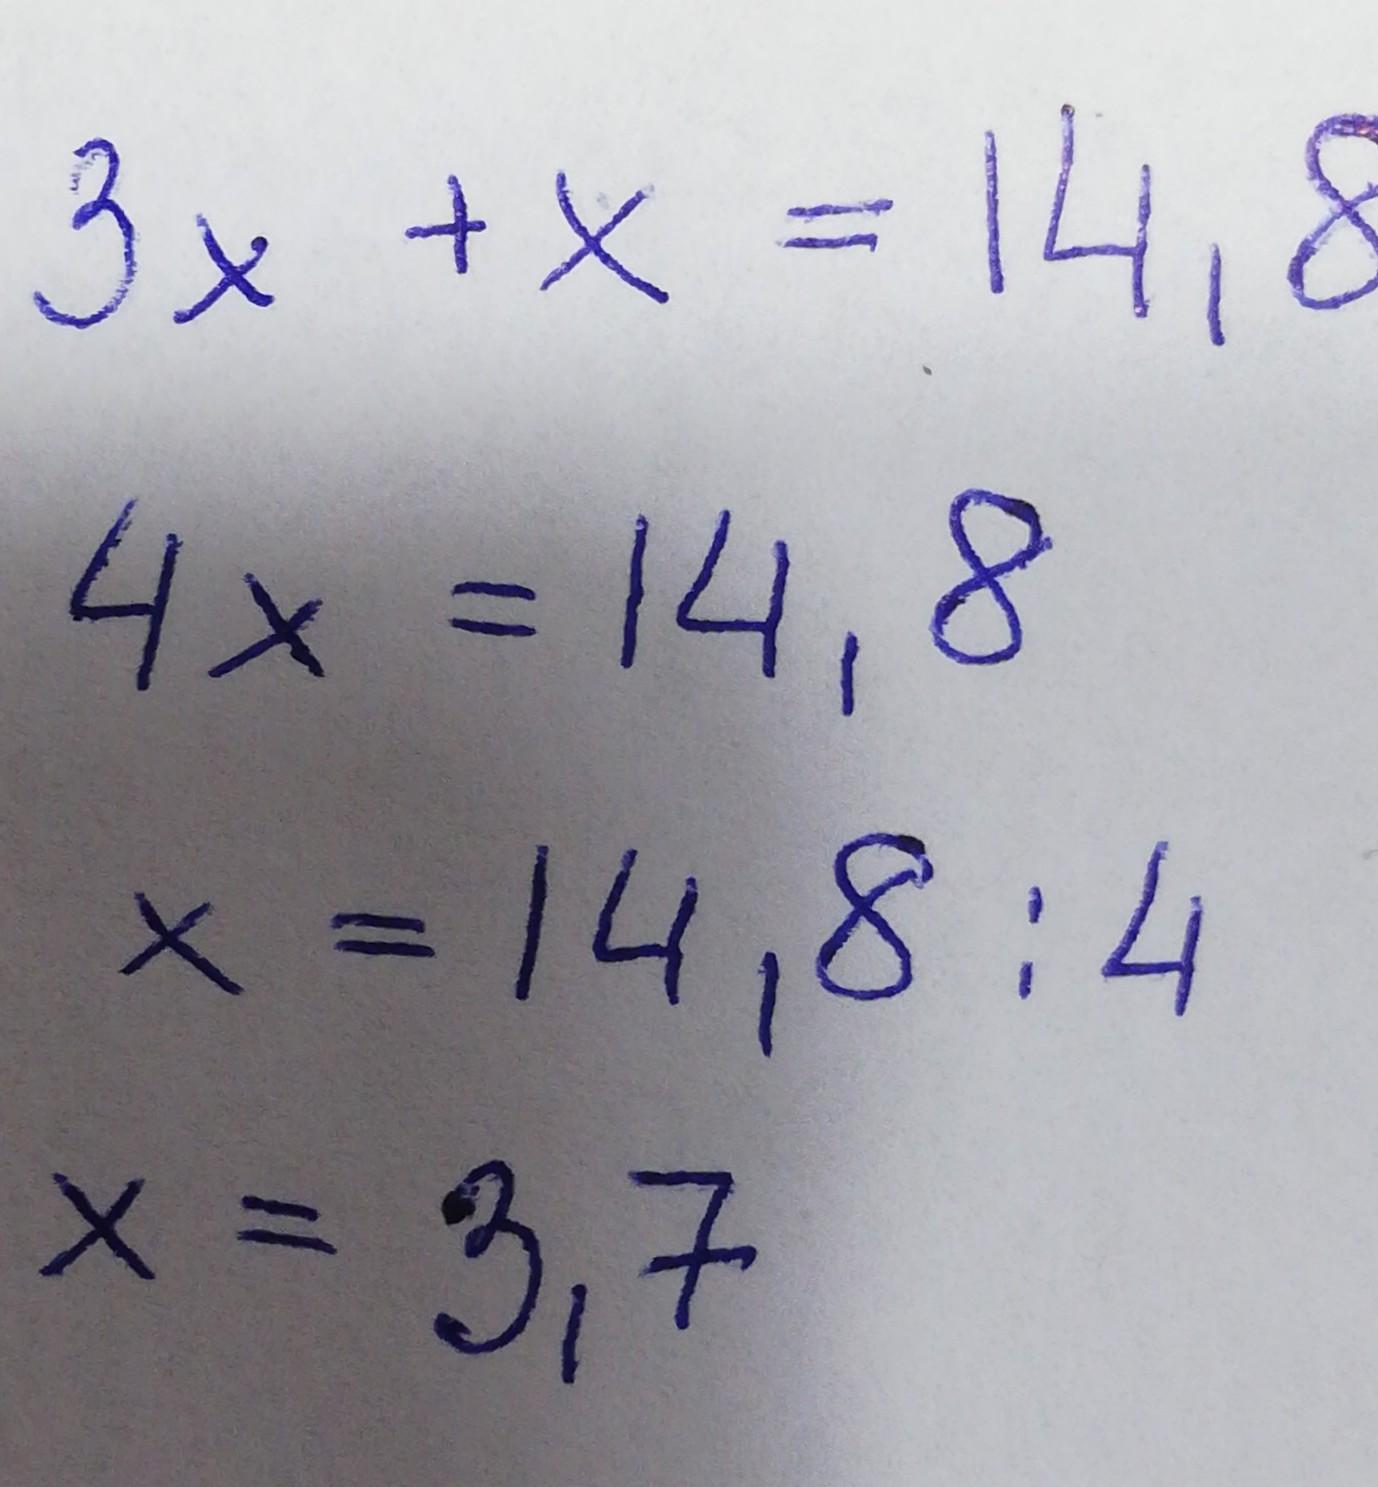 3x + x = 14,8
4x = 14,8
x = 14,8 : 4
x = 3,7